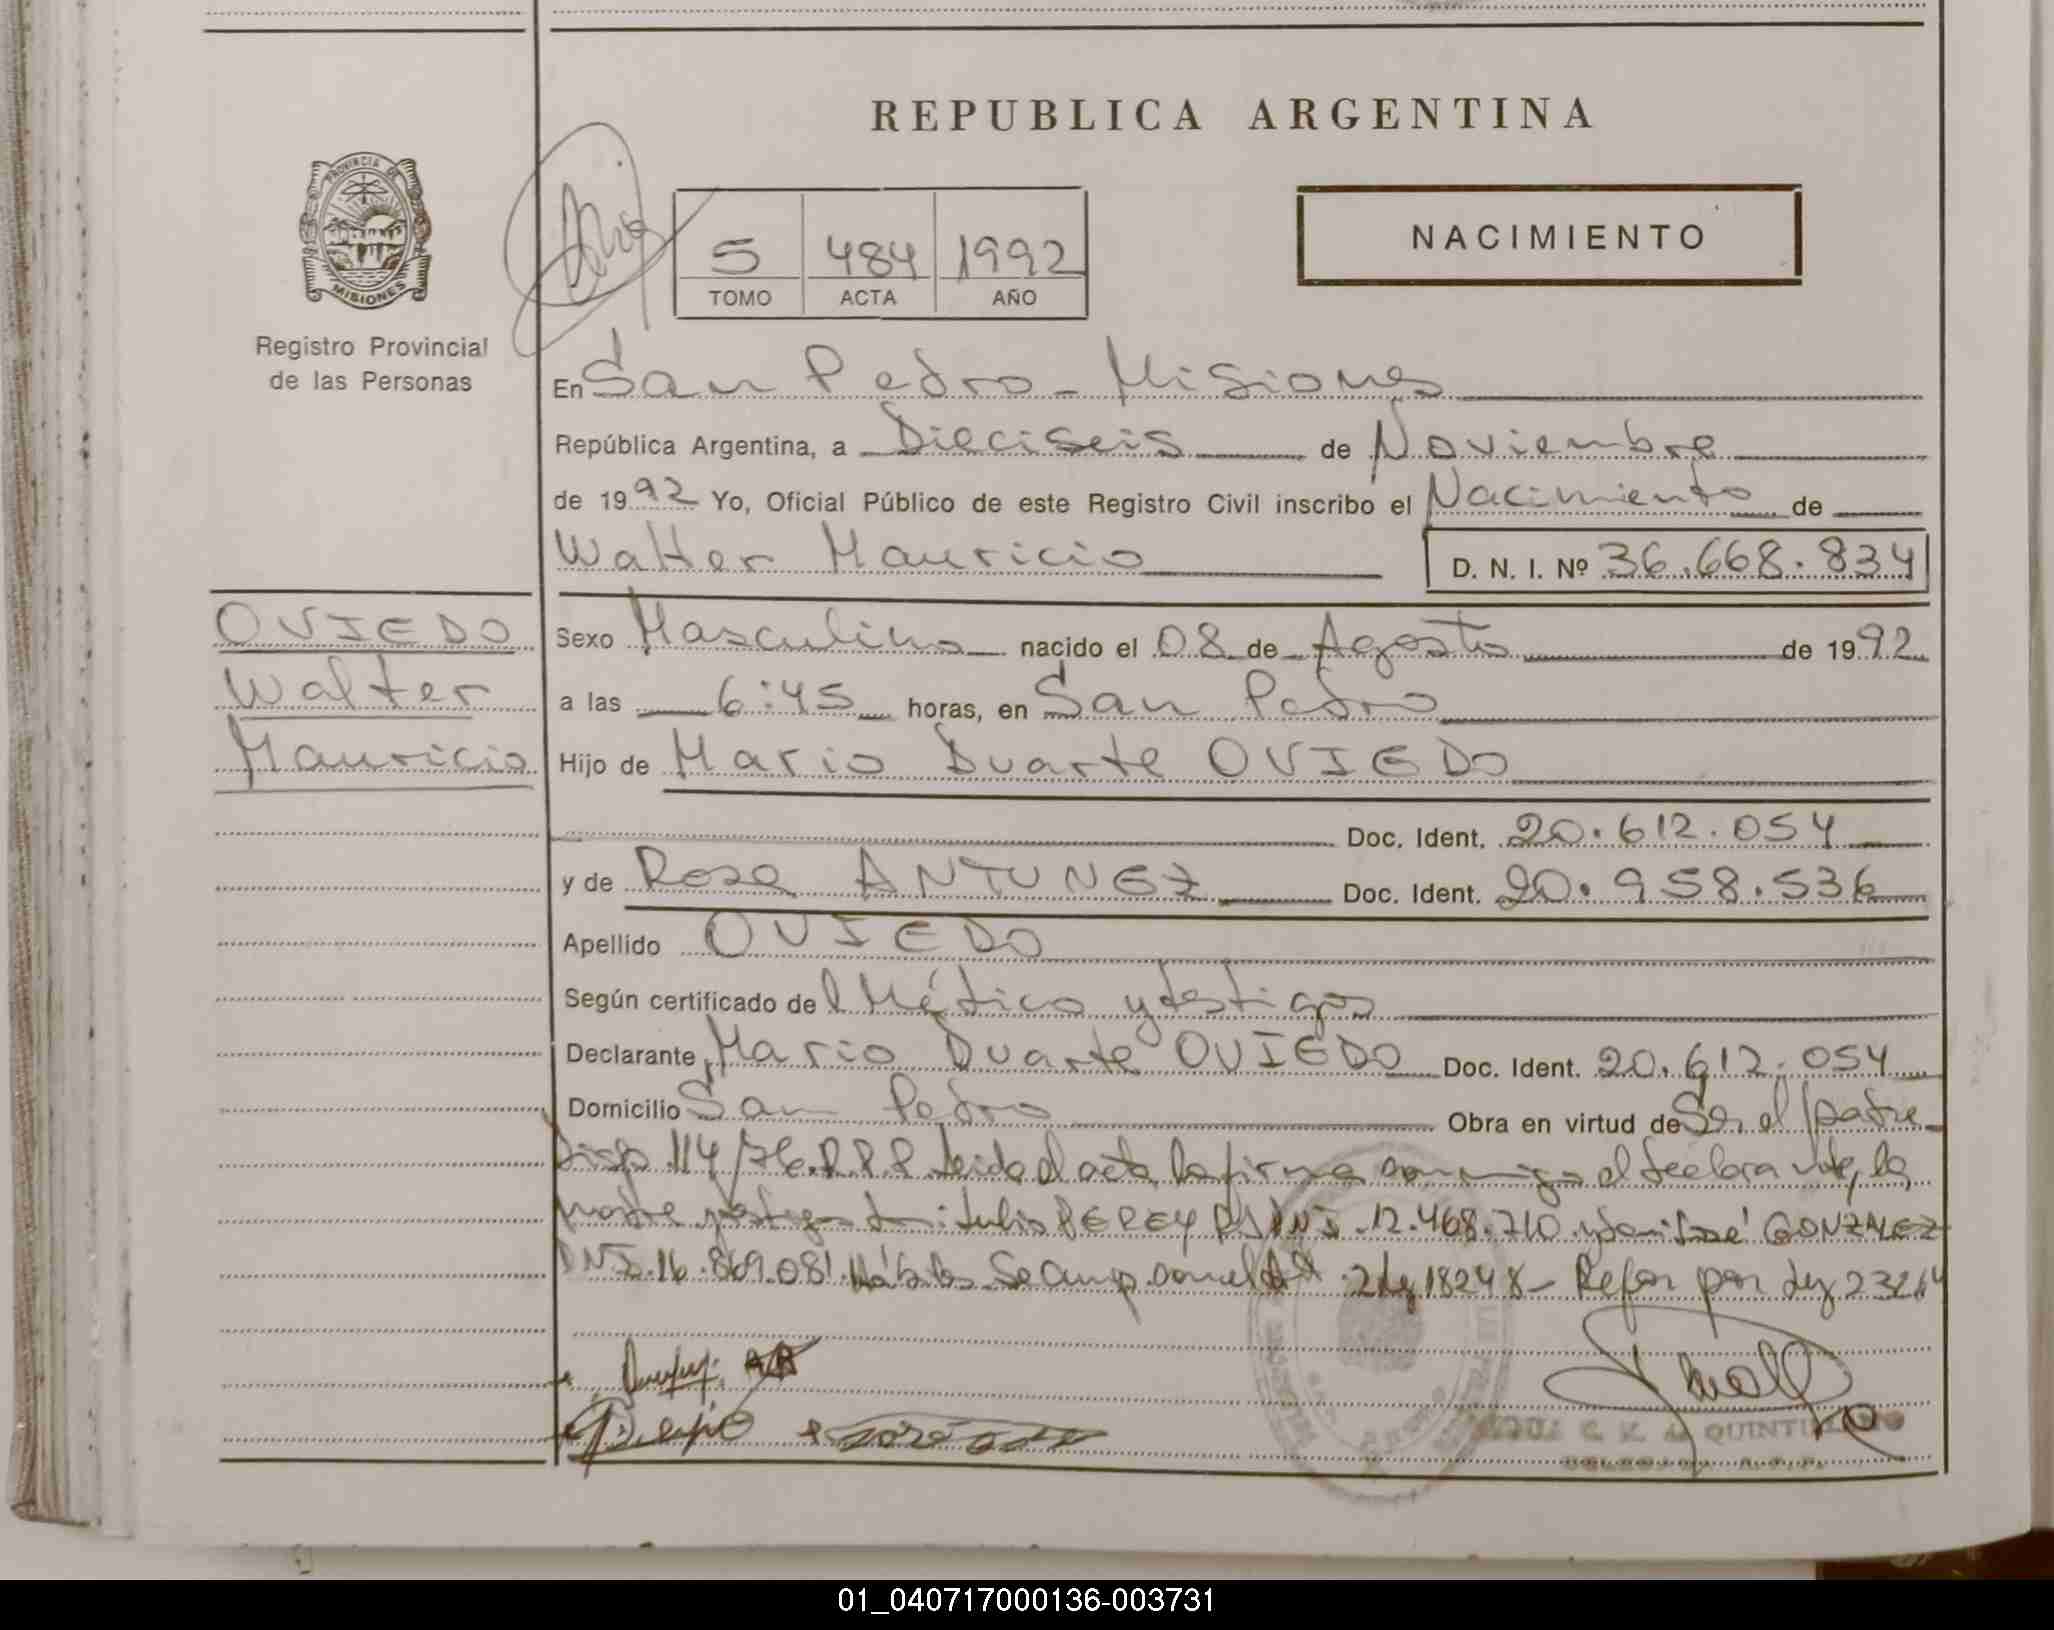 REPUBLICA ARGENTINA
PROVINCIA DE
MISIONES
Registro Provincial
de las Personas
5 484 1992
TOMO ACTA AÑO
NACIMIENTO
En San Pedro - Misiones
República Argentina, a Dieciseis de Noviembre
de 1992 Yo, Oficial Público de este Registro Civil inscribo el Nacimiento de
Walter Mauricio D. N. I. Nº 36.668.834
OVIEDO
Walter
Mauricio
Sexo Masculino nacido el 08 de Agosto de 1992
a las 6:45 horas, en San Pedro
Hijo de Mario Duarte OVIEDO
Doc. Ident. 20.612.054
y de Rosa ANTUNEZ Doc. Ident. 20.958.536
Apellido OVIEDO
Según certificado del Médico y testigos
Declarante Mario Duarte OVIEDO Doc. Ident. 20.612.054
Domicilio San Pedro Obra en virtud de Ser el padre
Disp 114/76 R.P.P. Leida el acta la firma conmigo el declarante, la
madre y testigos Julio PEREYRA DNI 12.468.710 y José GONZALEZ
DNI 16.869.081 Se comp con el Art 2 Ley 18248 - Refor por Ley 23264
QUINTU
01_040717000136-003731